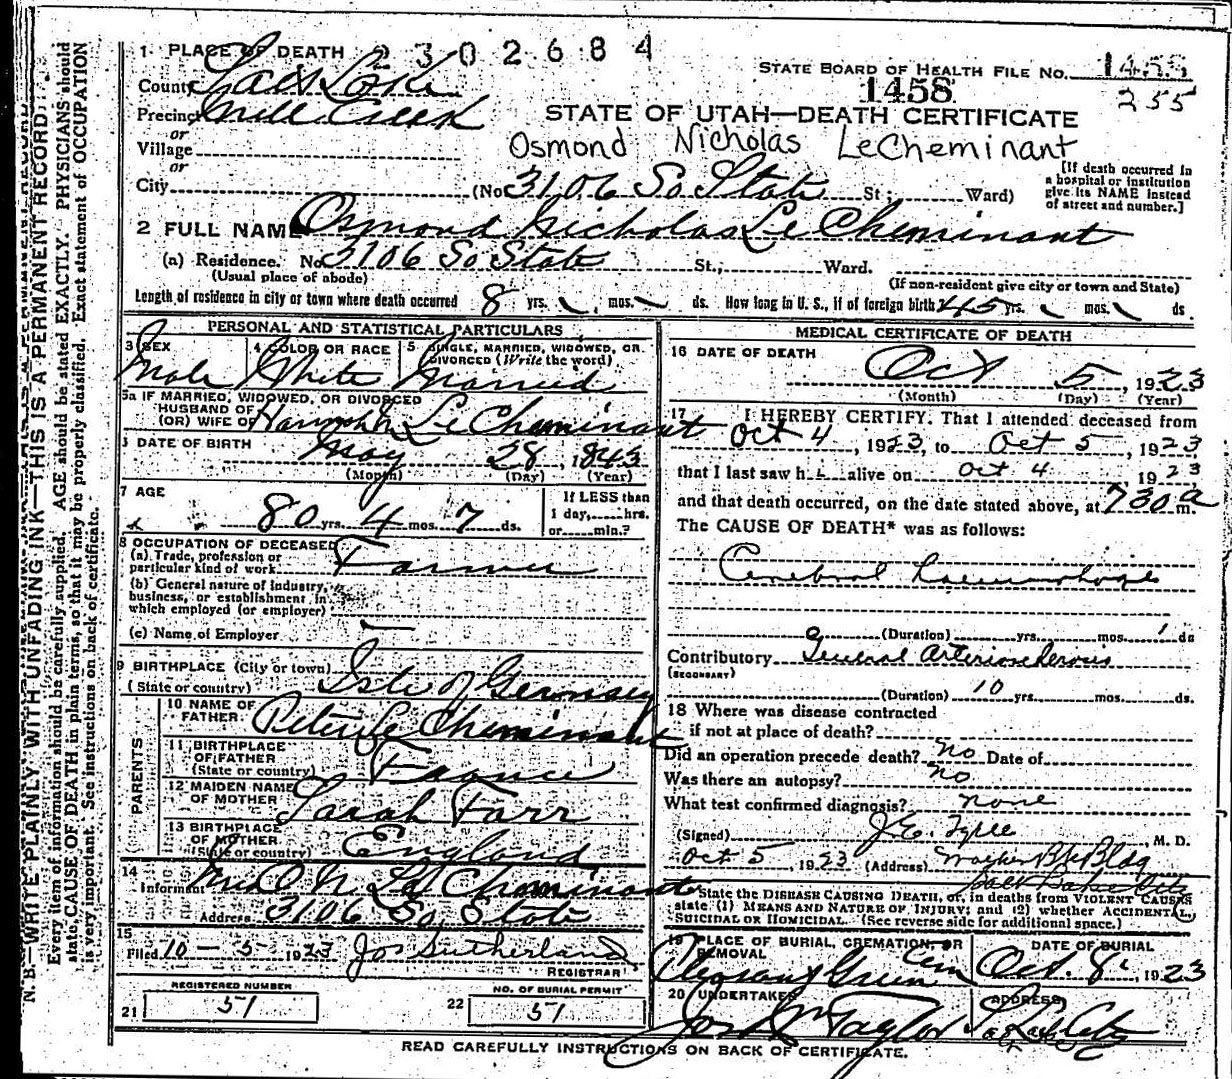 1 PLACE OF DEATH 2302684
STATE BOARD OF HEALTH FILE NO. 1455
1458
255
County Salt Lake
Precinct Mill Creek
STATE OF UTAH—DEATH CERTIFICATE
or
Village
Osmond Nicholas LeCheminant
or
City (No. 3106 So State St; Ward)
[If death occurred in a hospital or institution give its NAME instead of street and number.]
2 FULL NAME Osmond Nicholas Le Cheminant
(a) Residence. No. 3106 So State St., Ward.
(Usual place of abode) (If non-resident give city or town and State)
Length of residence in city or town where death occurred 8 yrs. mos. ds. How long in U. S., if of foreign birth 45 yrs. mos. ds.
PERSONAL AND STATISTICAL PARTICULARS
3 SEX Male
4 COLOR OR RACE White
5 SINGLE, MARRIED, WIDOWED, OR DIVORCED (Write the word) Married
5a IF MARRIED, WIDOWED, OR DIVORCED
HUSBAND OF
(OR) WIFE OF Hannah Le Cheminant
6 DATE OF BIRTH May 28, 1843
(Month) (Day) (Year)
7 AGE 80 yrs. 4 mos. 7 ds.
If LESS than 1 day, hrs. or min.?
8 OCCUPATION OF DECEASED
(a) Trade, profession or particular kind of work Farmer
(b) General nature of industry, business, or establishment in which employed (or employer)
(c) Name of Employer
9 BIRTHPLACE (City or town)
(State or country) Isle of Guernsey
PARENTS
10 NAME OF FATHER Peter Le Cheminant
11 BIRTHPLACE OF FATHER (State or country) France
12 MAIDEN NAME OF MOTHER Sarah Farr
13 BIRTHPLACE OF MOTHER (State or country) England
14 Informant Mrs O. N. Le Cheminant
Address 3106 So State
15 Filed 10-5 1923 Jos Sutherland
REGISTRAR
REGISTERED NUMBER
21 51
NO. OF BURIAL PERMIT
22 51
MEDICAL CERTIFICATE OF DEATH
16 DATE OF DEATH Oct 5, 1923
(Month) (Day) (Year)
17 I HEREBY CERTIFY, That I attended deceased from
Oct 4, 1923, to Oct 5, 1923
that I last saw h alive on Oct 4 1923
and that death occurred, on the date stated above, at 730 a m.
The CAUSE OF DEATH* was as follows:
Cerebral haemorrhage
(Duration) yrs. mos. 1 ds
Contributory General Arteriosclerosis
(SECONDARY)
(Duration) 10 yrs. mos. ds.
18 Where was disease contracted
if not at place of death?
Did an operation precede death? no Date of
Was there an autopsy? no
What test confirmed diagnosis? none
(Signed) J.E. Tyree M. D.
Oct 5, 1923 (Address) Walker Bk Bldg
Salt Lake City
State the DISEASE CAUSING DEATH, or, in deaths from VIOLENT CAUSES state (1) MEANS AND NATURE OF INJURY; and (2) whether ACCIDENTAL, SUICIDAL OR HOMICIDAL. (See reverse side for additional space.)
19 PLACE OF BURIAL, CREMATION, OR REMOVAL Pleasant Green Cem
DATE OF BURIAL Oct. 8, 1923
20 UNDERTAKER Jos Wm Taylor
ADDRESS Salt Lake City
READ CAREFULLY INSTRUCTIONS ON BACK OF CERTIFICATE.
N. B.—WRITE PLAINLY, WITH UNFADING INK—THIS IS A PERMANENT RECORD.
Every item of information should be carefully supplied. AGE should be stated EXACTLY. PHYSICIANS should
state CAUSE OF DEATH in plain terms, so that it may be properly classified. Exact statement of OCCUPATION
is very important. See instructions on back of certificate.